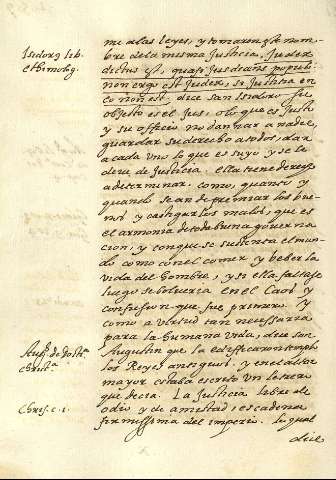 me a las leyes, y tomaron este nom-
Isidorus lib. et Ethimolog.
bre de la misma Justicia, Judex
dictus est, quasi jus dicens populo
non ergo est Judex, si Justitia en
eo non est, dice san Isidro. su
objeto es el Jus, o lo que es justo
y su officio no dañar a nadie,
guardar su derecho a todos, dar
a cada uno lo que es suyo y se le
deve de Justicia. ella tiene de
a determinar como, quanto y
quando se an de premiar los bue-
nos y castigar los malos, que es
el armonia de toda buena governa
cion, y con que se sustenta el mun
do como con el comer y beber la
vida del hombre, y si ella faltase
luego se bolveria en el Caos y
confusion que fue primero y
como a virtud tan necessaria
para la humana vida, dice san
Augustin que la edificaron templ
los Reyes antiguos y en el altar
mayor estaba escrito un letrero
que decia. La Justicia libre de
odio y de amistad, es cadena
firmissima del imperio. lo qual
dice